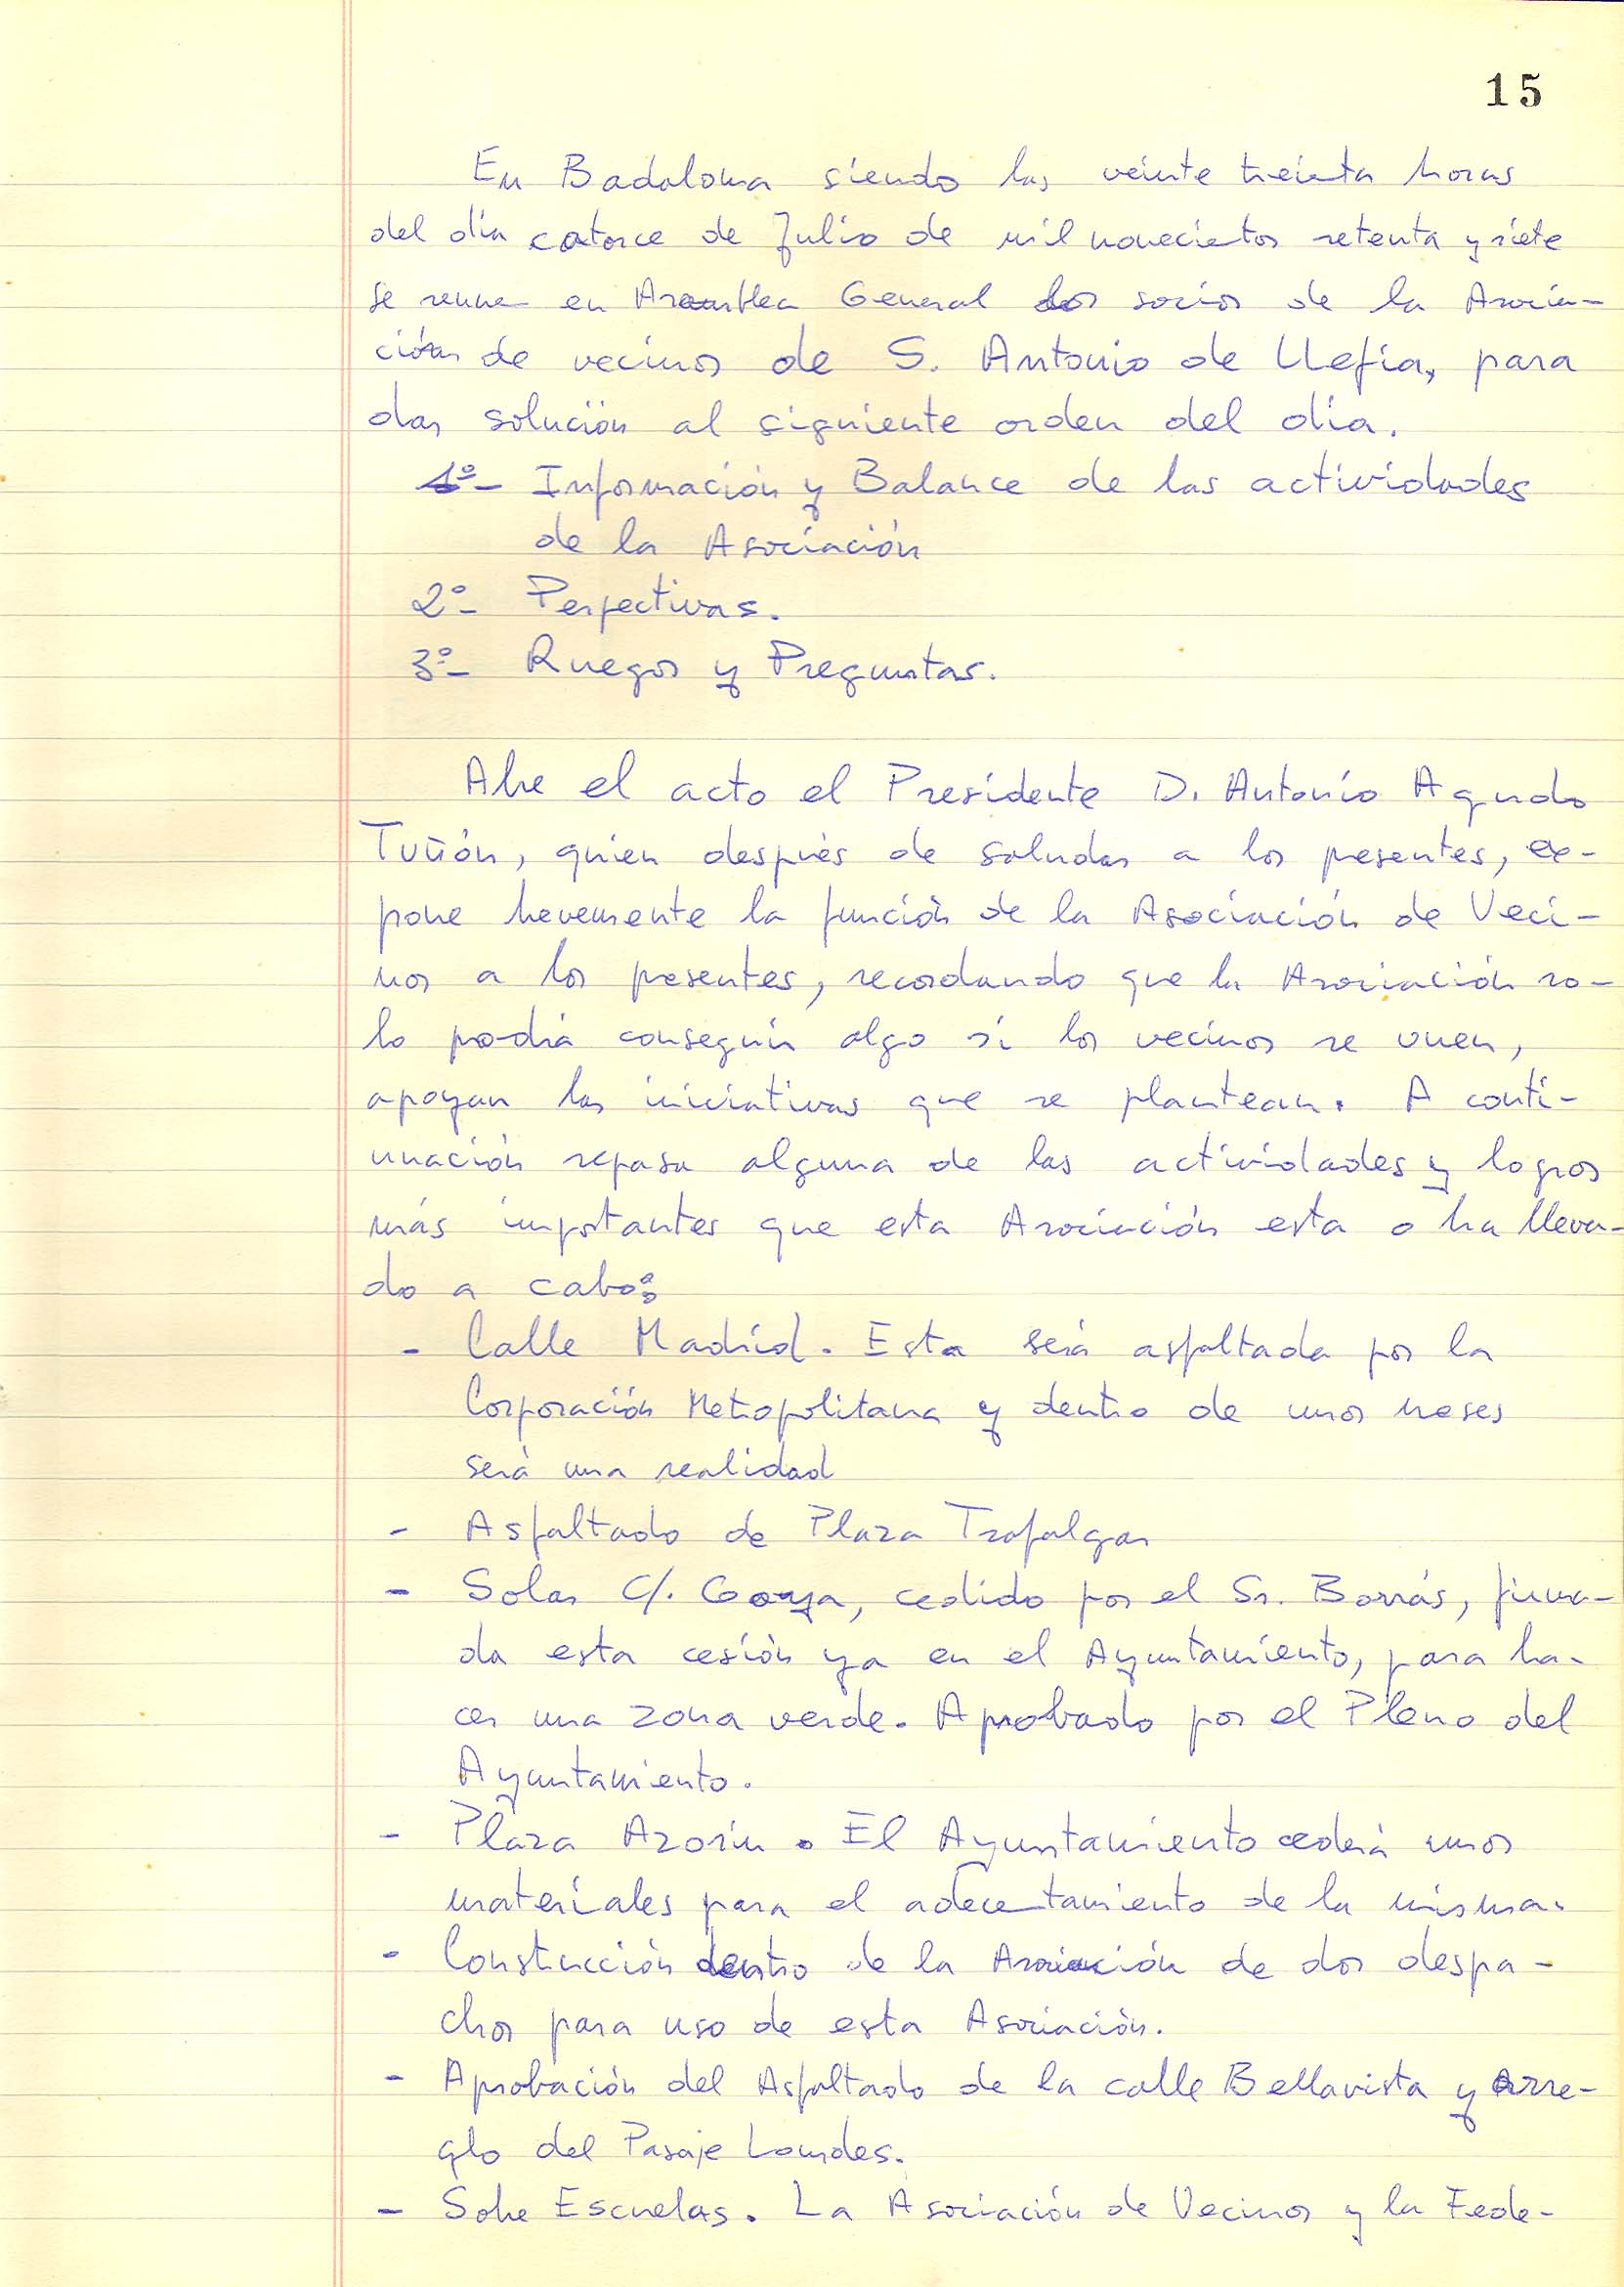 15
En Badalona siendo las veinte treinta horas
del día catorce de Julio de mil novecientos setenta y siete
se reune en Asamblea General los socios de la Asocia-
ción de vecinos de S. Antonio de Llefia, para
dar solución al siguiente orden del día.
1º- Información y Balance de las actividades
de la Asociación
2º- Perpectivas.
3º- Ruegos y Preguntas.
Abre el acto el Presidente D. Antonio Agudo
Tuñón, quien después de saludar a los presentes, ex-
pone brevemente la función de la Asociación de Veci-
nos a los presentes, recordando que la Asociación so-
lo podrá conseguir algo si los vecinos se unen,
apoyan las iniciativas que se plantean. A conti-
nuación repasa alguna de las actividades y logros
más importantes que esta Asociación esta o ha lleva-
do a cabo:
- Calle Madrid. Esta será asfaltada por la
Corporación Metropolitana y dentro de unos meses
será una realidad
- Asfaltado de Plaza Trafalgar
- Solar C/. Goya, cedido por el Sr. Borrás, firma-
da esta cesión ya en el Ayuntamiento, para ha-
cer una zona verde. Aprobado por el Pleno del
Ayuntamiento.
- Plaza Azorín. El Ayuntamiento cederá unos
materiales para el adecentamiento de la misma.
- Construcción dentro de la Asociación de dos despa-
chos para uso de esta Asociación.
- Aprobación del Asfaltado de la calle Bellavista y Arre-
glo del Pasaje Lourdes.
- Sobre Escuelas. La Asociación de Vecinos y la Fede-